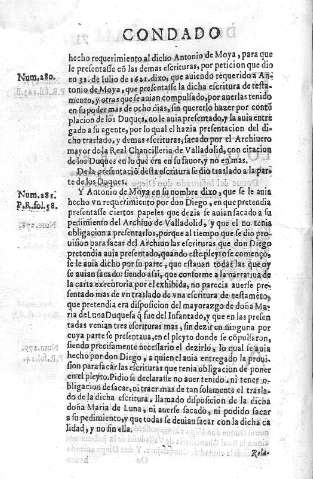 CONDADO
hecho requerimiento al dicho Antonio de Moya, para que
le presentasse en las demas escrituras, por peticion que dio
Num. 280.
en 31. de Iulio de 1621. dixo, que auiendo requerido a An-
tonio de Moya, que presentasse la dicha escritura de testa-
mento, y otras que se auian compulsado, por auerlas tenido
en su poder mas de ocho dias, sin quererlo hazer por contē
placion de los Duques, no le auia presentado, y la auia entre
gado a su agente, por lo qual el hazia presentacion del di-
cho traslado, y demas escrituras, sacado por el Archiuero
mayor de la Real Chancilleria de Valladolid, con citacion
de los Duques en lo que era en su fauor, y no en mas.
De la presentació desta escritura se dio traslado a la par
te de los Duques.
Num. 281.
P. 8. fol. 58.
Y Antonio de Moya en su nombre dixo, que se le auia
hecho vn requerimiento por don Diego, en que pretendia
presentasse ciertos papeles que dezia se auian sacado a su
pedimiento del Archiuo de Valladolid, y que el no tenia
obligacion a presentarlos, porque al tiempo que se dio pro-
uision para sacar del Archiuo las escrituras que don Diego
pretendia auia presentado, quando este pleyto se començó,
se le auia dicho por su parte, que estauan todas las que oy
se auian sacado: siendo assi, que conforme a la narratiua de
la carta executoria por el exhibida, no parecia auerse pre-
sentado mas de vn traslado de vna escritura de testamēto,
que pretendia era disposicion del mayorazgo de doña Ma-
ria de Luna Duquesa q̃ fue del Infantado, y que en las presen
tadas venian tres escrituras mas, sin dezir en ninguna por
cuya parte se presentaua, en el pleyto donde se cópulsaron,
siendo precisamente necessario el dezirlo, lo qual se auia
hecho por don Diego, a quien el auia entregado la prouis-
sion para sacar las escrituras que tenia obligacion de poner
en el pleyto. Pidio se declarasse no auer tenido, ni tener o-
bligacion de sacar, ni traer mas de tan solamente el trasla-
do de la dicha escritura, llamado disposicion de la dicha
doña Maria de Luna, ni auerse sacado, ni podido sacar
a su pedimiento, y que todas se deuian sacar con la dicha ca
lidad, y no sin ella.
Rela-